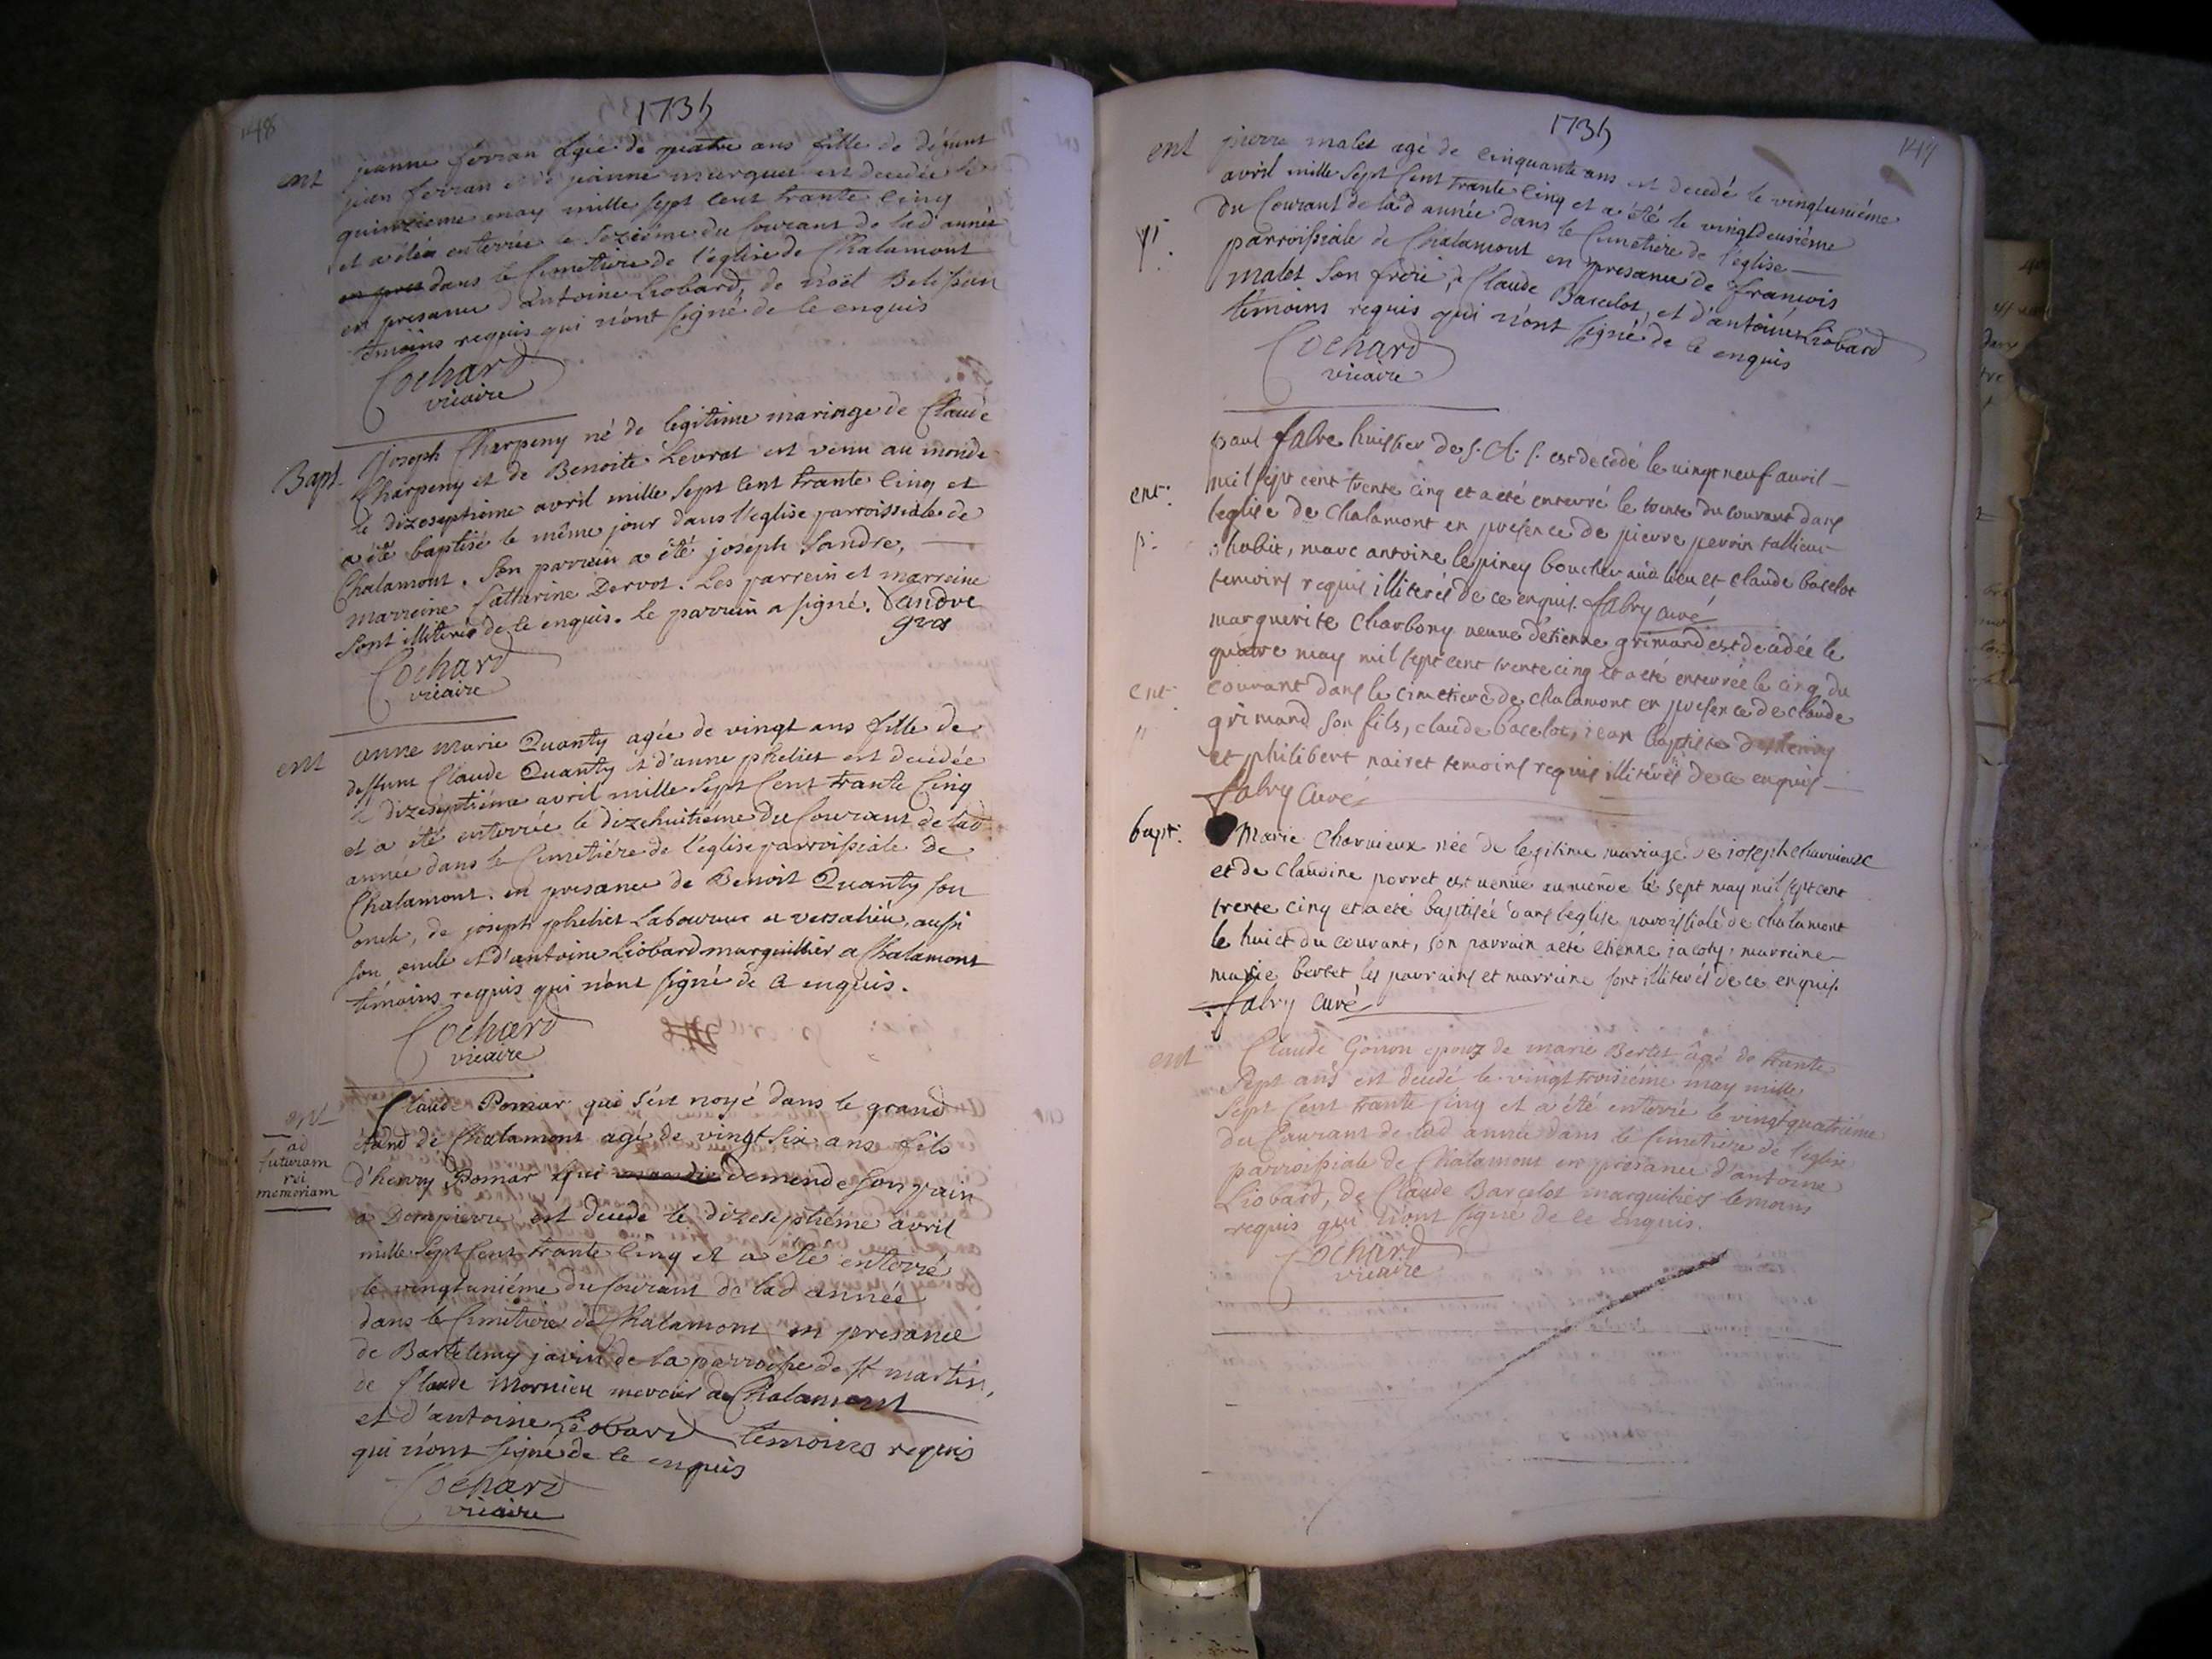 148
1735
ent
jeanne ferran agée de quatre ans fille de défunt
jean ferran et de jeanne marquet est decedée le
quinzieme may mille sept cent trante cinq
et a étée enterrée le sezième du courant de lad année
en pres dans le Cimetiere de l'eglise de Chalamont
en presance d'antoine Liobard, de noël
temoins requis qui n'ont signé de ce enquis
Cochard
vicaire
Bapt.
Joseph Charpeny né de legitime mariage de Claude
Charpeny et de Benoite Levrat est venu au monde
le dizeseptième avril mille sept cent trante cinq et
a été baptisé le même jour dans l'eglise parroissiale de
Chalamont. Son parrein a été joseph Sandre,
marreine Catharine Dervot. Les parrein et marreine
sont illiterés de ce enquis. Le parrein a signé. Vandre
Cochard
vicaire
ent
anne marie Quanty agée de vingt ans fille de
deffunt Claude Quanty et d'anne pheliet est decedée
le dizeseptiéme avril mille sept cent trante cinq
et a été enterrée le dizehuitiéme du Courant de lad
année dans le Cimetiére de l'église parroissiale de
Chalamont. en presance de Benoit Quanty son
oncle, de joseph pheliet Laboureur a versalieu, aussi
son oncle et d'antoine Liobard marguillier a Chalamont
témoins requis qui n'ont signé de ce enquis.
Cochard
vicaire
ent
ad
futuram
rei
memoriam
Claude Pomar qui s'est noyé dans le grand
étand de Chalamont agé de vingt six ans fils
d'henry Pomar qui demende son pain
a Dompierre est decede le dizeseptiéme avril
mille sept cent trante cinq et a été enterré
le vingtuniéme du Courant de lad année
dans le Cimetiere de Chalamont en presance
de Bartelemy javin de la parroisse de st martin,
de Claude Mornieu de Chalamont
et d'antoine Liobard temoins requis
qui n'ont signé de ce enquis
Cochard
vicaire
1735
149
ent
pierre malet agé de cinquante ans est decedé le vingtuniéme
avril mille sept cent trante cinq et a été le vingtdeusiéme
du Courant de lad année dans le Cimetiére de l'eglise
parroissiale de Chalamont en presance de francois
malet son frere, de Claude Barcelot, et d'antoine Liobard
temoins requis qui n'ont signé de ce enquis
Cochard
vicaire
ent.
p.
paul fabre huissier de S. A. S. est decedé le vingt neuf avril
mil sept cent trente cinq et a été enterré le trente du courant dans
leglise de Chalamont en presence de pierre perrin tallieur
d'habit, marc antoine lepiney boucher aud lieu et claude bacelot
temoins requis illiterés de ce enquis. fabry curé
ent.
marguerite Charbony veuve d'etienne grimand est decedée le
quatre may mil sept cent trente cinq et a été enterrée le cinq du
courant dans le cimetiere de chalamont en presence de claude
grimand son fils, claude bacelot, jean baptiste
et philibert nairet temoins requis illiterés de ce enquis
fabry curé
bapt.
Marie Charvieux née de legitime mariage de joseph charvieux
et de Claudine porret est venue au monde le sept may mil sept cent
trente cinq et a été baptisée dans leglise parroissiale de chalamont
le huict du courant, son parrain a été etienne jacoty, marreine
marie bertet les parrains et marreine sont illiterés de ce enquis.
fabry curé
ent
Claude Gonon epouz de marie Bertet âgé de trante
sept ans est decedé le vingt troisiéme may mille
sept cent trante cinq et a été enterré le vingtquatriéme
du Courant de lad année dans le Cimetiere de l'eglise
parroissiale de Chalamont en presance d'antoine
Liobard, de Claude Barcelot marguiliers temoins
requis qui n'ont signé de ce enquis.
Cochard
vicaire